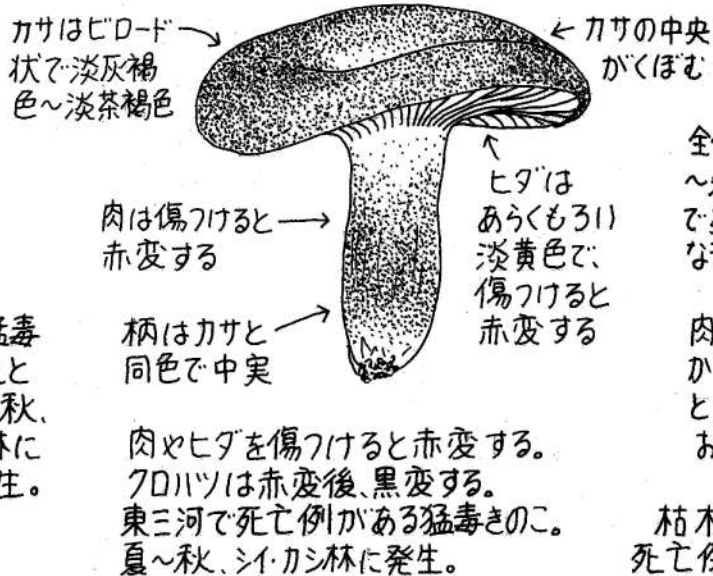 カサはビロード
状で淡灰褐
色〜淡茶褐色
カサの中央
がくぼむ
ヒダは
あらくもろい
淡黄色で、
傷つけると
赤変する
肉は傷つけると
赤変する
柄はカサと
同色で中実
肉やヒダを傷つけると赤変する。
クロハツは赤変後、黒変する。
東三河で死亡例がある猛毒きのこ。
夏〜秋、シイ・カシ林に発生。
猛毒
と
秋、
林に
生。
全
〜
で
な
肉
か
と
お
枯木
死亡例